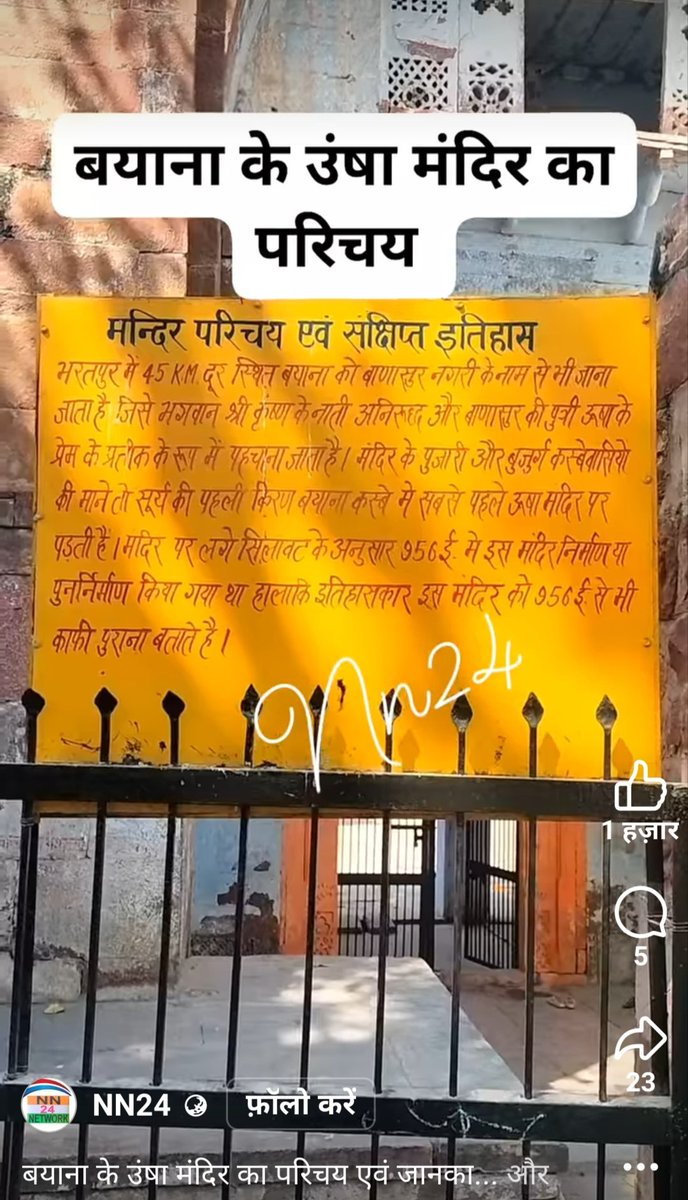 बयाना के उंषा मंदिर का
परिचय
मन्दिर परिचय एवं संक्षिप्त इतिहास
भरतपुर में 45 K.M. दूर स्थित बयाना को बाणासुर नगरी के नाम से भी जाना
जाता है जिसे भगवान श्री कृष्ण के नाती अनिरुद्ध और बाणासुर की पुत्री ऊषा के
प्रेम के प्रतीक के रूप में पहचाना जाता है। मंदिर के पुजारी और बुजुर्ग कस्बेवासियो
की माने तो सूर्य की पहली किरण बयाना कस्बे मे सबसे पहले ऊषा मंदिर पर
पड़ती है। मंदिर पर लगे सिलावट के अनुसार 956 ई. मे इस मंदिर निर्माण या
पुनर्निर्माण किया गया था हालाकि इतिहासकार इस मंदिर को 956 ई. से भी
काफी पुराना बताते है।
Nn24
1 हज़ार
5
23
NN
24
NETWORK
NN24 फ़ॉलो करें
बयाना के उंषा मंदिर का परिचय एवं जानका... और